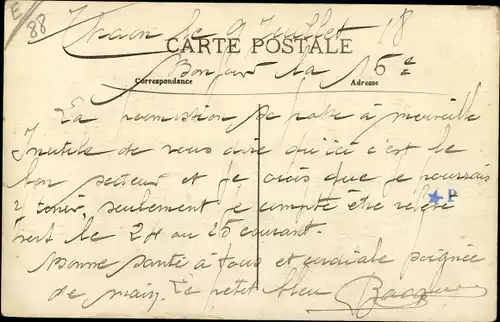 E
88
Thaon le 9 Juillet 18
CARTE POSTALE
Correspondance
Adresse
Bonjour la 15e
La permission se passe à merveille
Inutile de vous dire qu'ici c'est le
bon secteur et je crois que je pourrais
y tenir, seulement je compte être relevé
vers le 24 ou 25 courant.
Bonne santé à tous et cordiale poignée
de main. Le petit bleu
P